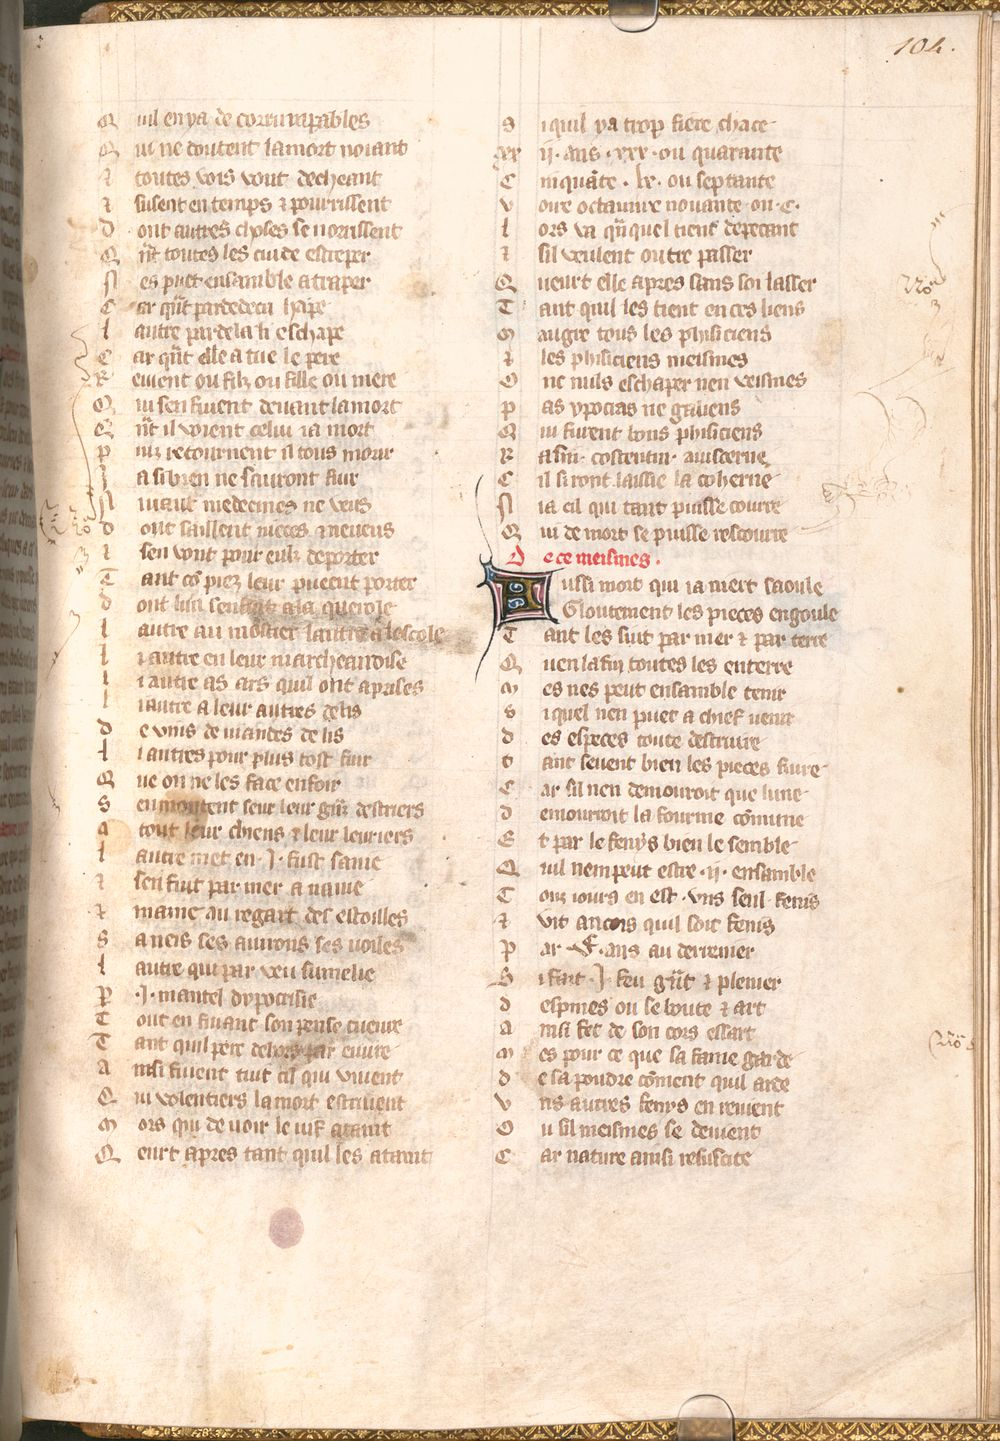 104.
Q uil en ya de corrumpables
Q ui ne doutent la mort noiant
⁊ toutes vois vont decheant
⁊ susent en temps ⁊ pourrissent
d ont autres choses se norrissent
Q n̄t toutes les cuide estreper
N es puet ensamble atraper
C ar qn̄t par dedeca hape
l autre par dela li eschape
C ar qn̄t elle a tue le pere
R emient ou filz ou fille ou mere
Q ui sen fuient deuant la mort
Q n̄t il voient celui ia mort
p uiz retournent il tous morir
ia si bien ne sauront fuir
N i uault medecines ne veus
d ont saillent nieces ⁊ neueus
⁊ sen vont pour eulz deporter
T ant cō piez leur pueent porter
d ont lun sen a la querole
l autre au mostier lautre a lescole
l autre en leur marcheandise
l autre as ars quil ont aprises
l autre a leur autres delis
d e vins de uiandes de lis
l autres pour plus tost fuir
Q ue on ne les face enfoir
S en montent seur leur gn̄s destriers
a tout leur chiens ⁊ leur leuriers
l autre met en .I. fust same
⁊ sen fuit par mer a nauie
⁊ maine au regart des estoilles
S a neis ses auirons ses uoiles
l autre qui par veu sumelie
P .I. mantel dypocrisie
T out en fuiant son pense cueure
T ant quil pere dehors par euure
a insi fuient tuit cil qui viuent
Q ui volentiers la mort eschiuent
M ors qui de noir le uis ataint
Q eurt apres tant quil les ataint
S i quil ya trop fiere chace
xx ij. ans .xxx. ou quarante
C inquāte .lx. ou septante
V oire octaniue nouante ou .C.
l ors va qn̄quel tient depecant
⁊ sil veulent outre passer
Q ueurt elle apres sans soi lasser
T ant quil les tient en ces liens
M augre tous les phisiciens
⁊ les phisiciens meismes
O nc nuls eschaper nen veismes
p as ypocras ne galiens
Q ui furent bons phisiciens
R asin. costentin. auiscenne
C il si ront laissie la coherne
N ia cil qui tant puisse courre
Q ui de mort se puisse rescourre
D e ce meismes.
A ussi mort qui ia niert saoule
Gloutement les pieces engoule
T ant les suit par mer ⁊ par terre
Q uen la fin toutes les enterre
M es nes peut ensamble tenir
S i quel nen puet a chief uenir
d es especes toute destruire
t ant seuent bien les pieces fuire
C ar sil nen demouroit que lune
d emourroit la fourme cōmune
E t par le fenys bien le semble
Q uil nempeut estre .ii. ensamble
T ouz iours en est .vns seul fenis
⁊ vit ancois quil soit fenis
P ar .Vᶜ. ans au derrenier
S i fait .I. feu gn̄t ⁊ plenier
d espines ou se boute ⁊ art
a insi fet de son cors essart
M es pour ce que sa fame garde
d e sa poudre cōment quil arde
V ns autres fenys en reuient
O u sil meismes se deuient
C ar nature ainsi resuscite